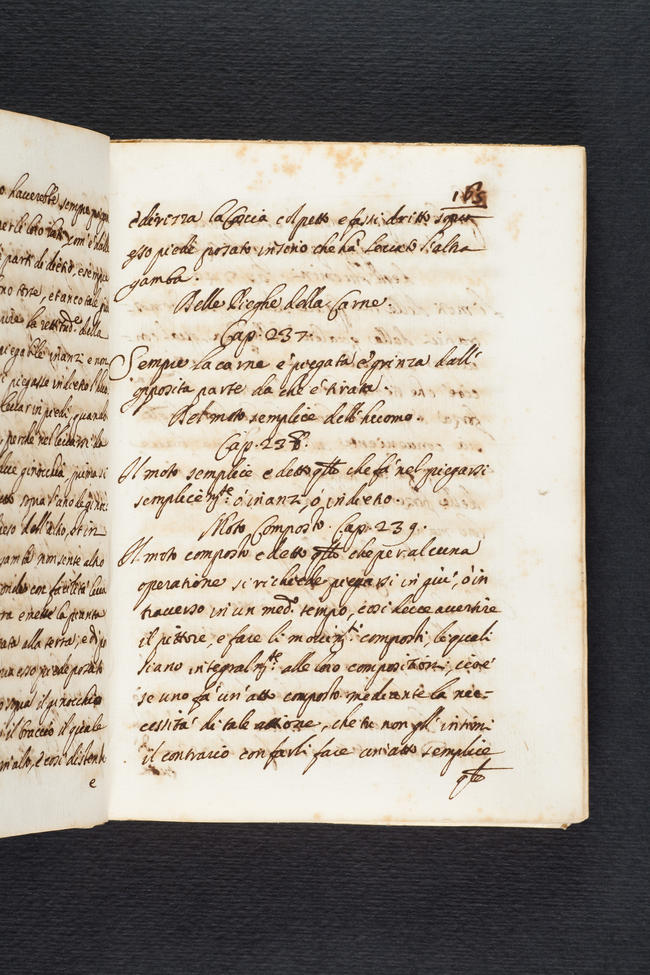 o haverebbe sempre
parti di dietro, e sempre
mo torre, et anco tale più
la rettitud.e della
piegabile inanzi e non
piegasse indietro l'huo
in piedi, quando
perche nel levarsi da
due ginocchia, prima si
dell'altro, et in
gamba non sente altro
con facilità leva
e mette la pianta
alla terra, e dipo
esso piede posato
il ginocchio
il braccio il quale
alto, è così distent
e
185
e dirizza la coscia e'l petto e fassi dritto sopra
esso piede posato insino che hà levato l'altra
gamba.
Delle Pieghe della Carne.
Cap. 237.
Sempre la carne è piegata e grinza dall'
opposita parte da che è tirata.
Del moto semplice dell'huomo.
Cap. 238.
Il moto semplice e detto qllo che fà nel piegarsi
semplicem.te ò inanzi, ò indietro.
Moto Composto. Cap. 239.
Il moto composto e detto qllo che per alcuna
operatione si richiede piegarsi in giù, ò in
traverso in un med.o tempo, così devee avertire
il pittore, e face li movim.ti composti, le quali
siano integralm.te alle loro compositioni, cioè
se uno fà un'atto composto mediante la nec-
cessità di tale attione, che tu non gl' intimi
il contrario con farli face un'atto semplice
qllo